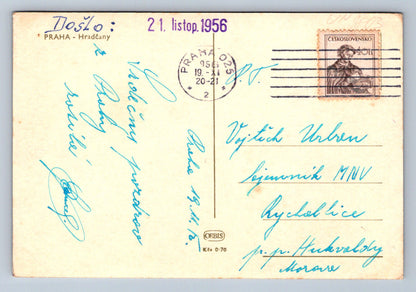 Došlo:
21. listop. 1956
PRAHA - Hradčany
PRAHA 025
1956
19.-XI
20-21
2
ČESKOSLOVENSKO
Srdečný pozdrav
z Prahy
Praha 19.11.
P. T.
Vojtěch Urban
tajemník MNV
Rychaltice
p.p. Hukvaldy
Morava
ORBIS
Kčs 0·70